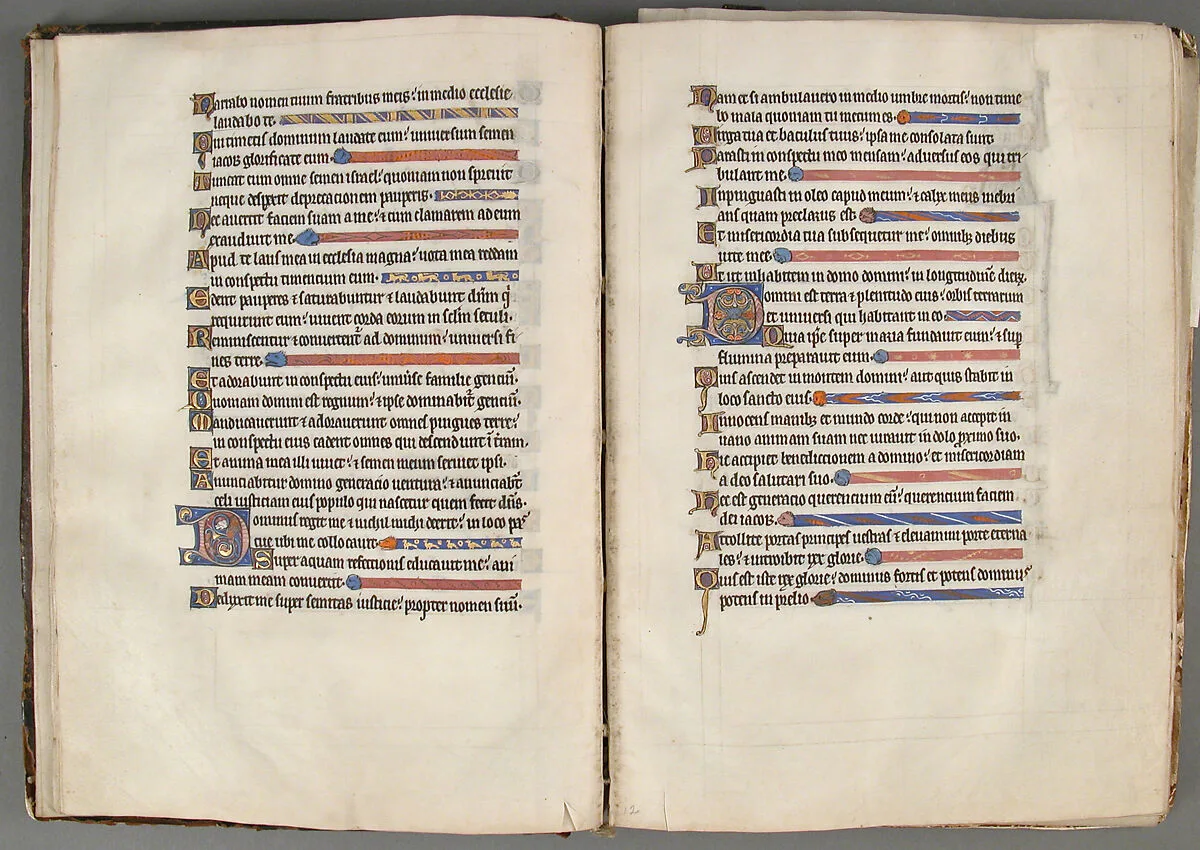 Narrabo nomen tuum fratribus meis: in medio ecclesie
laudabo te.
Qui timetis dominum laudate eum: universum semen
iacob glorificate eum.
Timeat eum omne semen israel: quoniam non sprevit
neque despexit deprecationem pauperis.
Nec avertit faciem suam a me: & cum clamarem ad eum
exaudivit me.
Apud te laus mea in ecclesia magna: vota mea reddam
in conspectu timencium eum.
Edent pauperes & saturabuntur & laudabunt dnm q
requirunt eum: vivent corda eorum in sclm seculi.
Reminiscentur & convertent ad dominum: universi fi
nes terre.
Et adorabunt in conspectu eius: univse familie genciu.
Quoniam domini est regnum: & ipse dominabit genciu.
Manducaverunt & adoraverunt omnes pingues terre:
in conspectu eius cadent omnes qui descendunt i tram.
Et anima mea illi vivet: & semen meum serviet ipsi.
Anunciabitur domino generacio ventura: & anunciabt
celi iusticiam eius populo qui nascetur quem fecit dns.
Dominus regit me & nichil michi deerit: in loco pas
cue ibi me collocavit.
Super aquam refectionis educavit me: ani
mam meam convertit.
Deduxit me super semitas iusticie: propter nomen suu.
Nam et si ambulavero in medio umbre mortis: non time
bo mala quoniam tu mecum es.
Virga tua et baculus tuus: ipsa me consolata sunt.
Parasti in conspectu meo mensam: adversus eos qui tri
bulant me.
Inpinguasti in oleo capud meum: & calix meus inebri
ans quam preclarus est.
Et misericordia tua subsequetur me: omnibz diebus
vite mee.
Et ut inhabitem in domo domini: in longitudine dierz.
Domini est terra & plenitudo eius: orbis terrarum
et universi qui habitant in eo.
Quia ipse super maria fundavit eum: & sup
flumina preparavit eum.
Quis ascendet in montem domini: aut quis stabit in
loco sancto eius.
Innocens manibz et mundo corde: qui non accepit in
vano animam suam nec iuravit in dolo proximo suo.
Hic accipiet benediccionem a domino: et misericordiam
a deo salutari suo.
Hec est generacio querencium eu: querencium faciem
dei iacob.
Attollite portas principes vestras & elevamini porte eterna
les: & introibit rex glorie.
Quis est iste rex glorie: dominus fortis et potens dominus
potens in prelio.
12